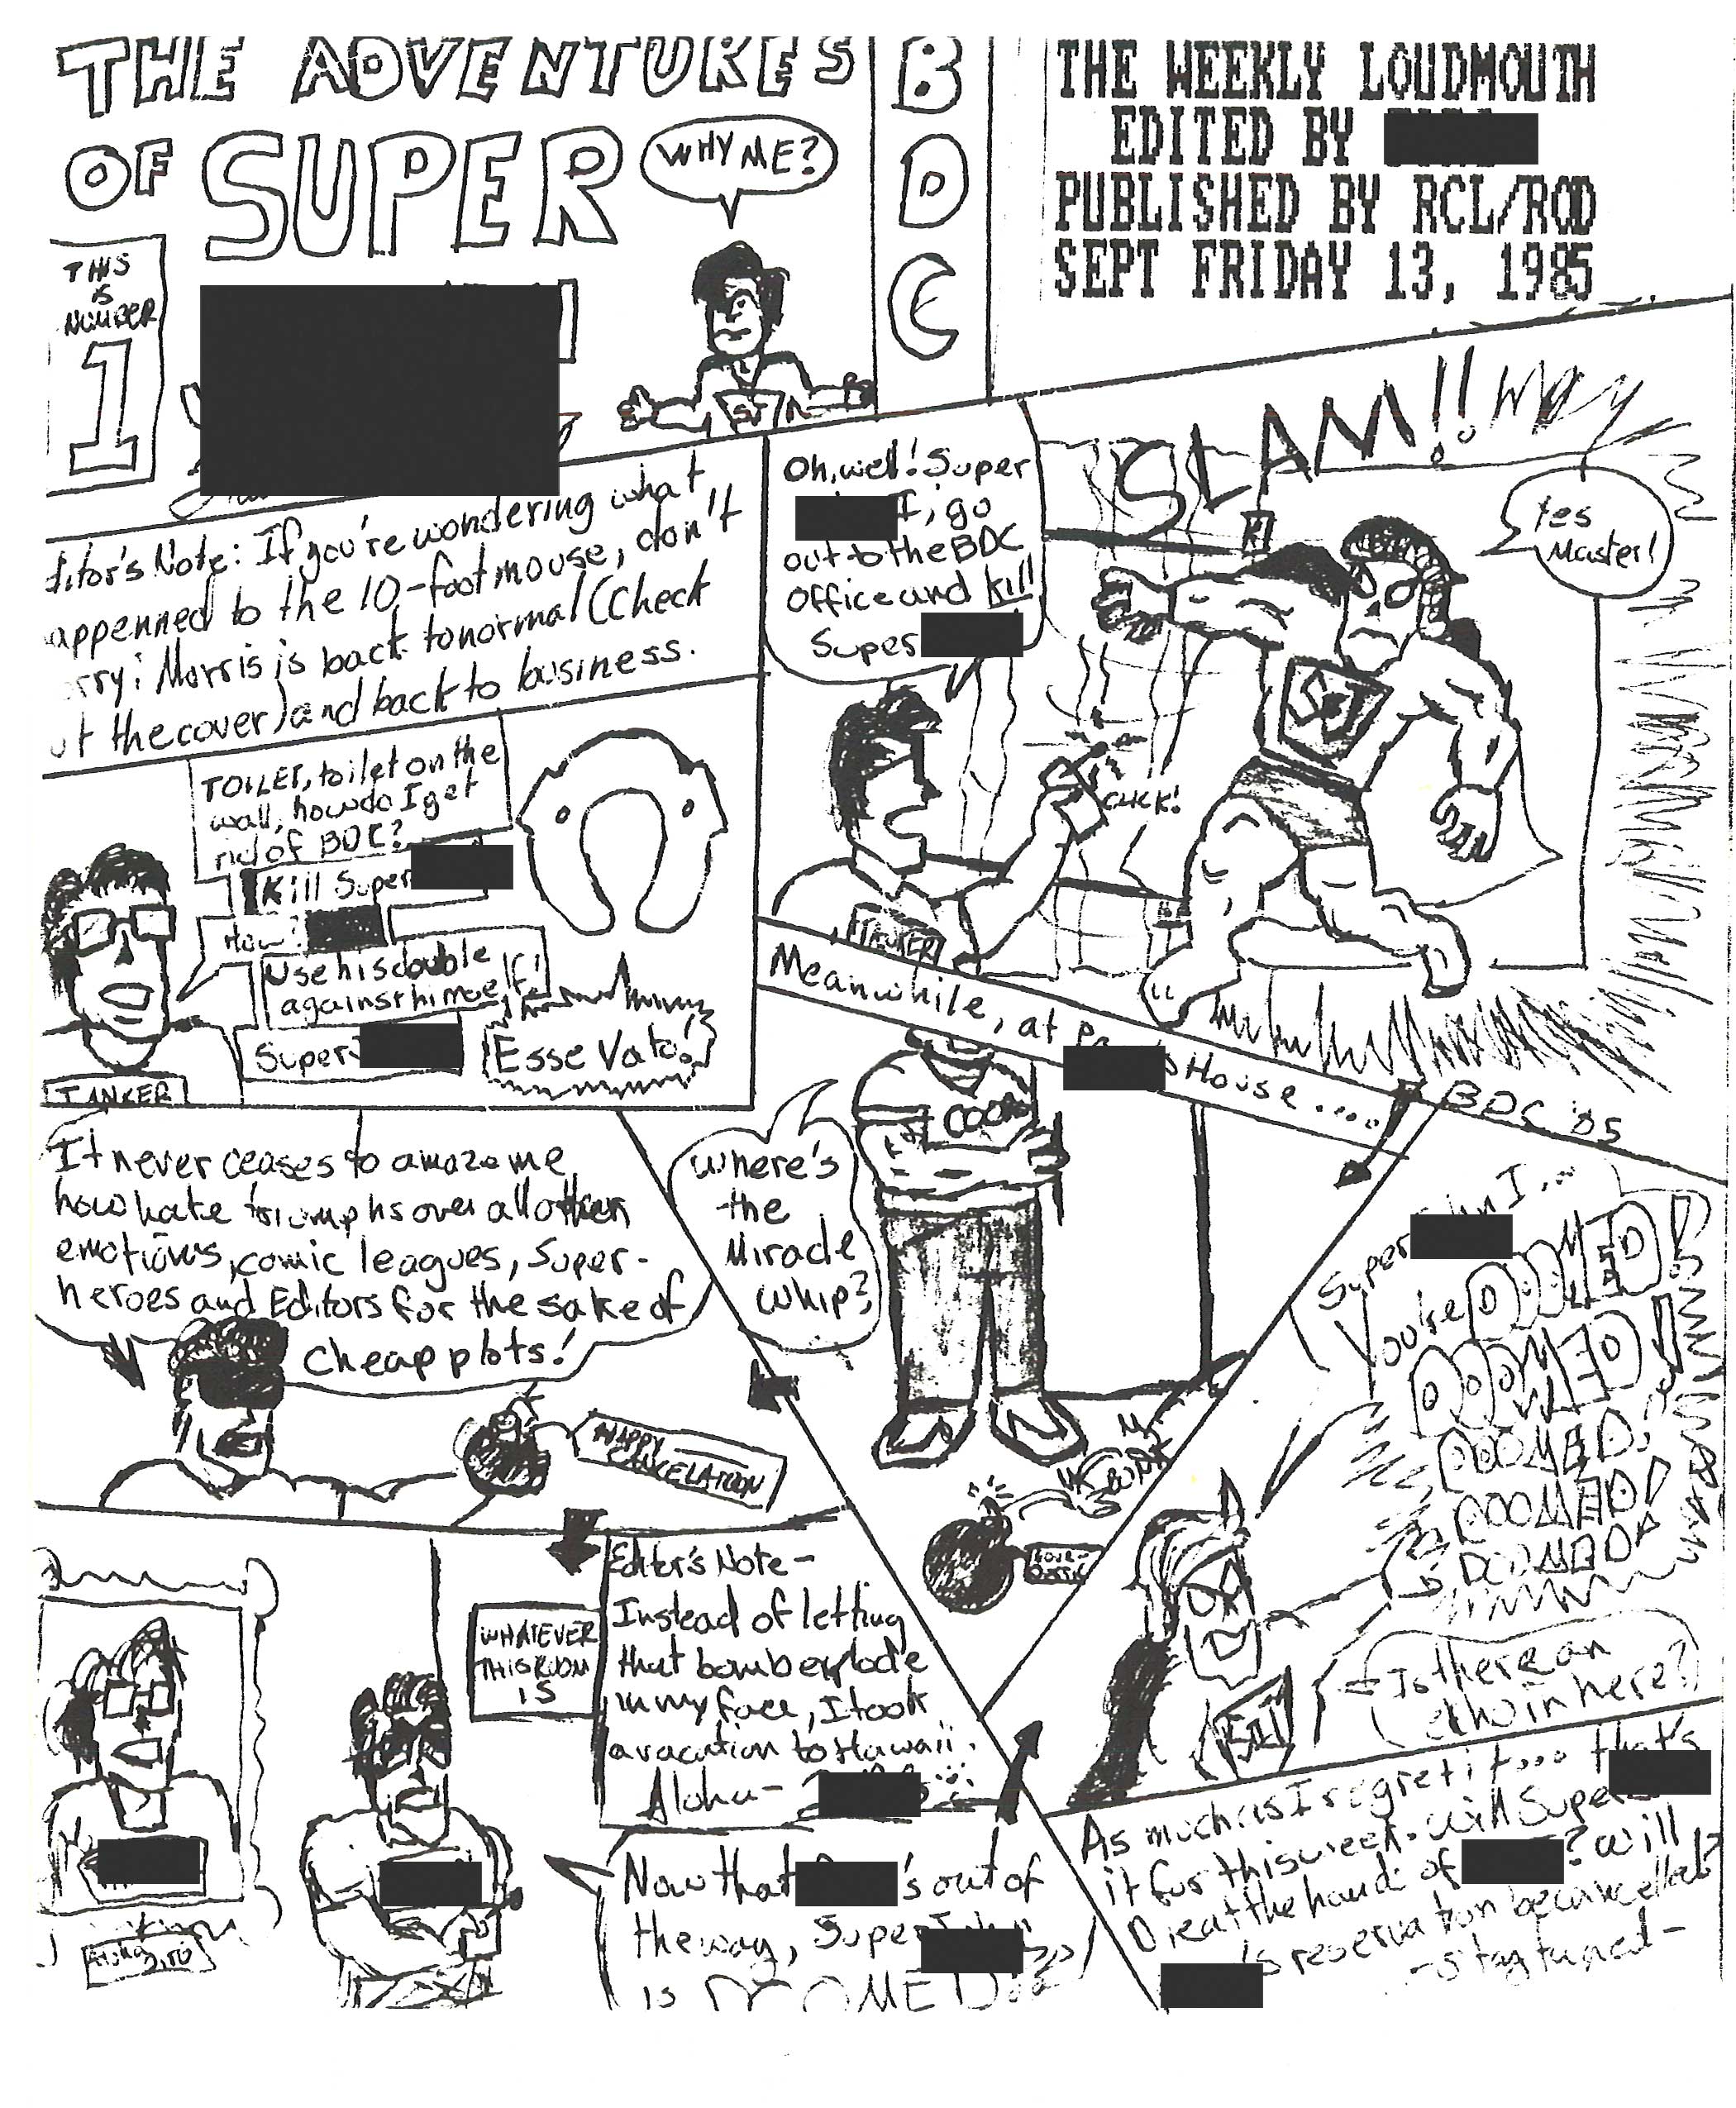 THE ADVENTURES
OF SUPER
WHY ME?
THIS
IS
NUMBER
1
B
D
C
THE WEEKLY LOUDMOUTH
EDITED BY
PUBLISHED BY RCL/ROD
SEPT FRIDAY 13, 1985
Editor's Note: If you're wondering what
appenned to the 10-foot mouse, don't
rry; Morris is back to normal (Check
ut the cover) and back to business.
Oh, well! Super
I, go
out to the BDC
Office and kill
Super
SLAM!!
Yes
Master!
CLICK!
TANKER
TOILET, toilet on the
wall, how do I get
rid of BDC?
Kill Super
How?
Use his double
against himself!
Super
Esse Vato!
TANKER
Meanwhile, at
's House....
BDC '85
It never ceases to amaze me
how hate triumphs over all other
emotions, comic leagues, Super-
heroes and Editors for the sake of
cheap plots!
HAPPY
CANCELATION
Where's
the
Miracle
Whip?
COORS
Super I...
You're DOOMED!
DOOMED!
DOOMED!
DOOMED!
DOOMED!
Is there an
echo in here?
WHATEVER
THIS ROOM
IS
Editor's Note-
Instead of letting
that bomb explode
in my face, I took
a vacation to Hawaii.
Aloha-
Now that 's out of
the way, Super
is DOOMED
As much as I regret it... that's
it for this week. Will Super
Die at the hand of ? Will
's reservation be cancelled?
-stay tuned-